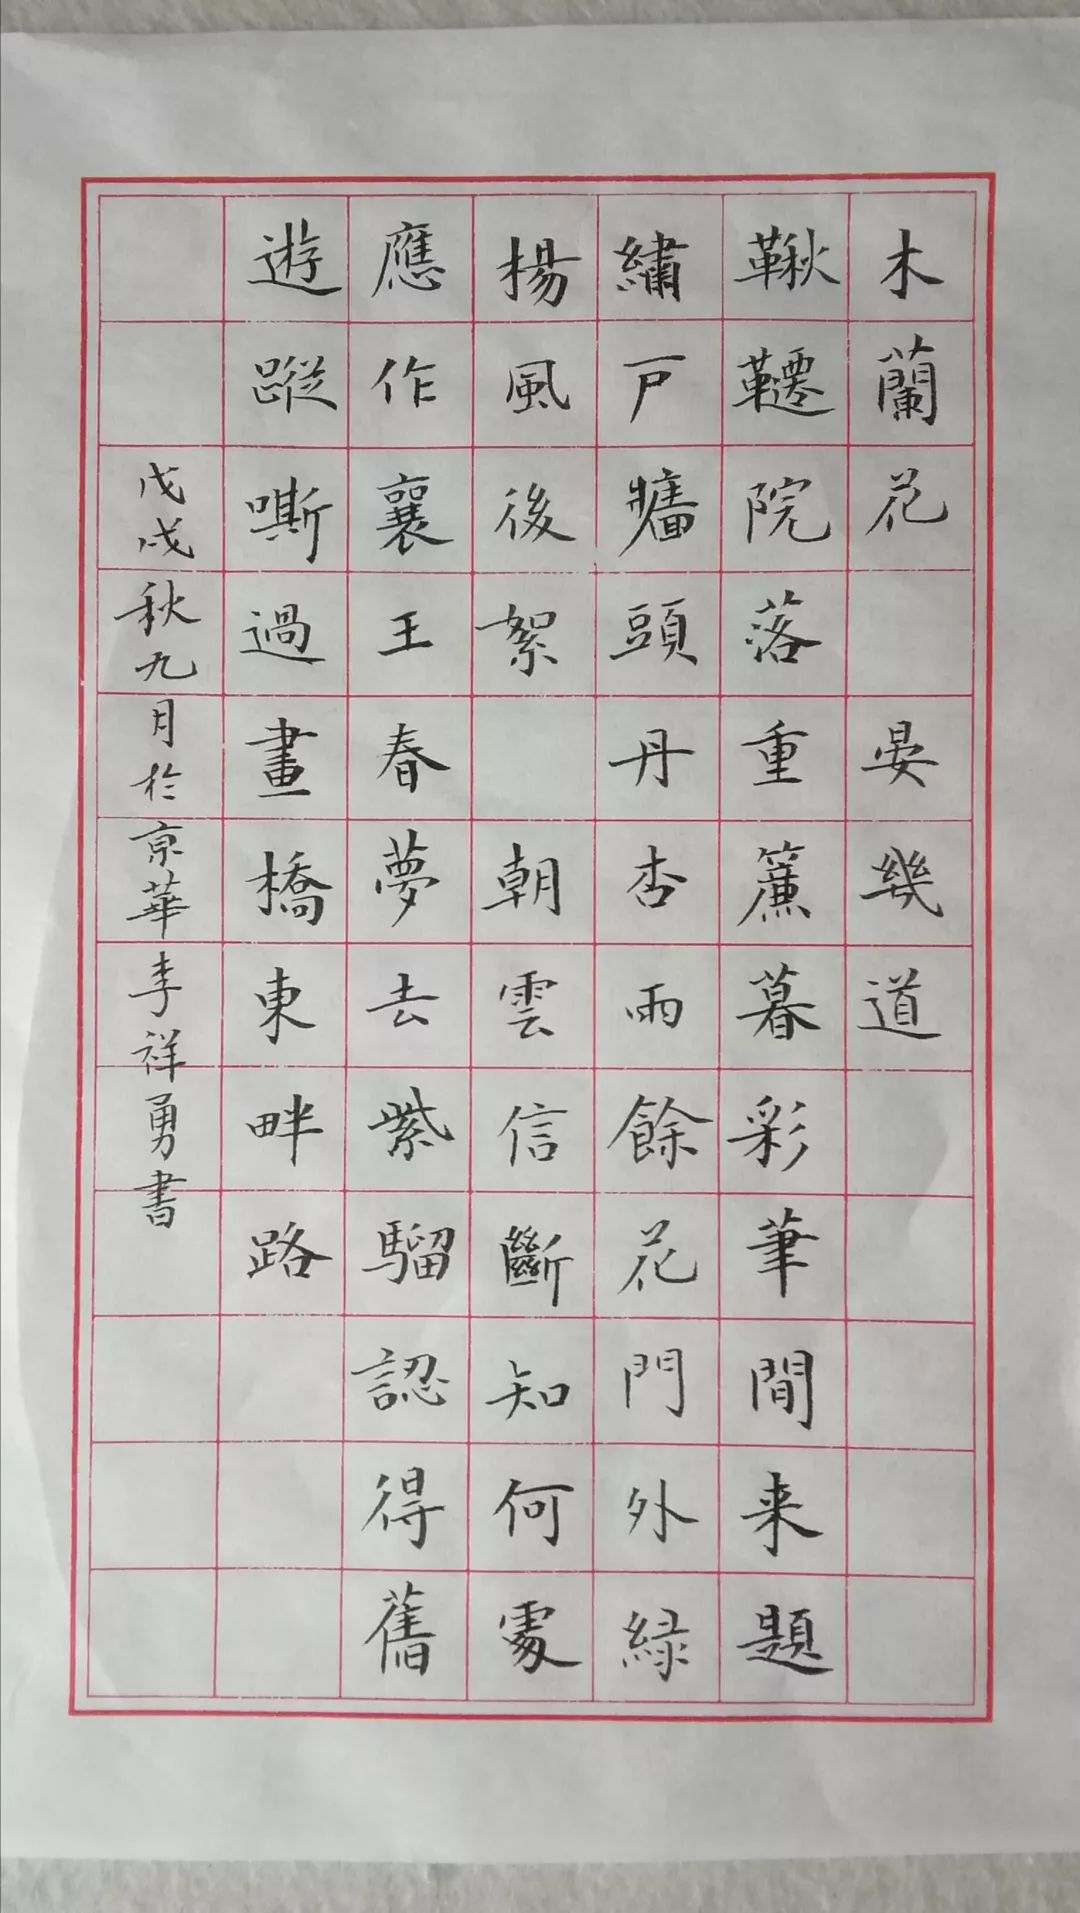 木蘭花 晏幾道
鞦韆院落重簾暮彩筆閒来題
繡戶牆頭丹杏雨餘花門外緑
楊風後絮 朝雲信斷知何處
應作襄王春夢去紫騮認得舊
遊蹤嘶過畫橋東畔路
戊戌秋九月於京華李祥勇書